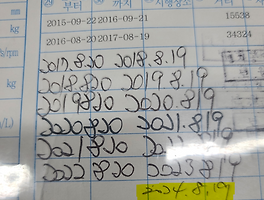 부터 까지 시행장소 거리
mm
2015-09-22 2016-09-21 15538
kg
2016-08-20 2017-08-19 34324
2017.8.20 2018.8.19
2018.8.20 2019.8.19
2019.8.20 2020.8.19
2020.8.20 2021.8.19
2021.8.20
2022.8.20 2023.8.19
2024.8.19